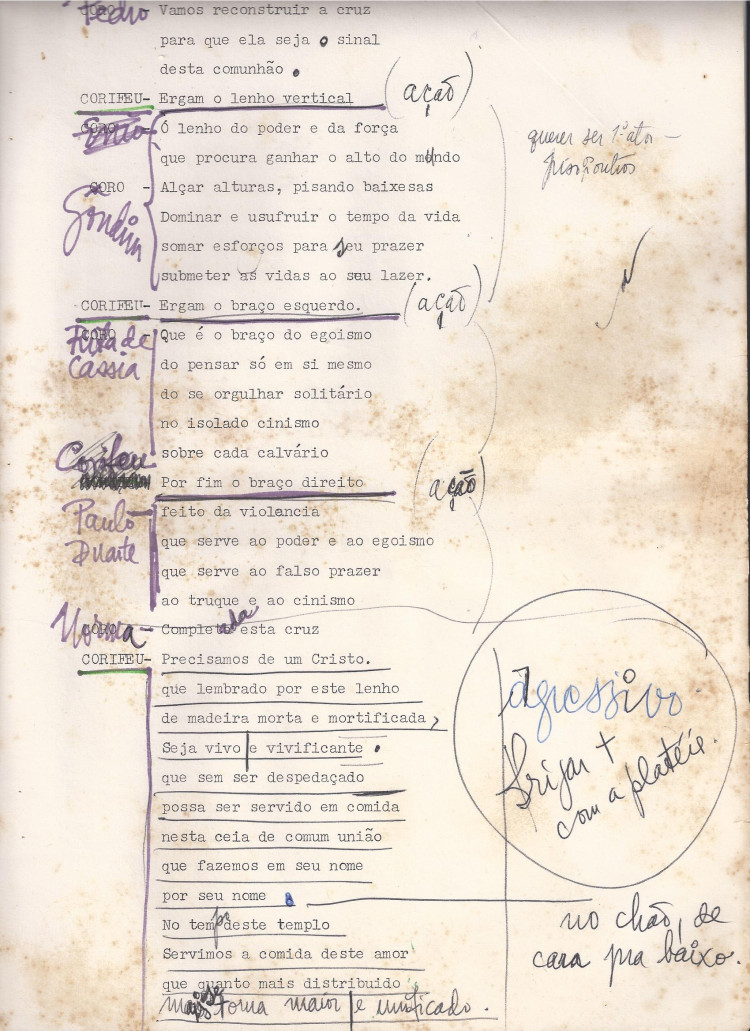 Pedro Vamos reconstruir a cruz
para que ela seja o sinal
desta comunhão.
CORIFEU- Ergam o lenho vertical (ação)
CORO Ó lenho do poder e da força
que procura ganhar o alto do mundo
querer ser 1º ator -
CORO - Alçar alturas, pisando baixesas
Dominar e usufruir o tempo da vida
somar esforços para seu prazer
submeter as vidas ao seu lazer.
CORIFEU- Ergam o braço esquerdo. (ação)
Rita de Cássia
CORO - Que é o braço do egoismo
do pensar só em si mesmo
do se orgulhar solitário
no isolado cinismo
sobre cada calvário
Corifeu Por fim o braço direito (ação)
Paulo Duarte feito da violencia
que serve ao poder e ao egoismo
que serve ao falso prazer
ao truque e ao cinismo
Norma - Completada esta cruz
CORIFEU- Precisamos de um Cristo.
que lembrado por este lenho
de madeira morta e mortificada,
Seja vivo e vivificante.
que sem ser despedaçado
possa ser servido em comida
nesta ceia de comum união
que fazemos em seu nome
por seu nome
No tempo deste templo
Servimos a comida deste amor
que quanto mais distribuido
mais se torna maior e unificado.
agressivo.
brigar +
com a platéia.
no chão, de
cara pra baixo.